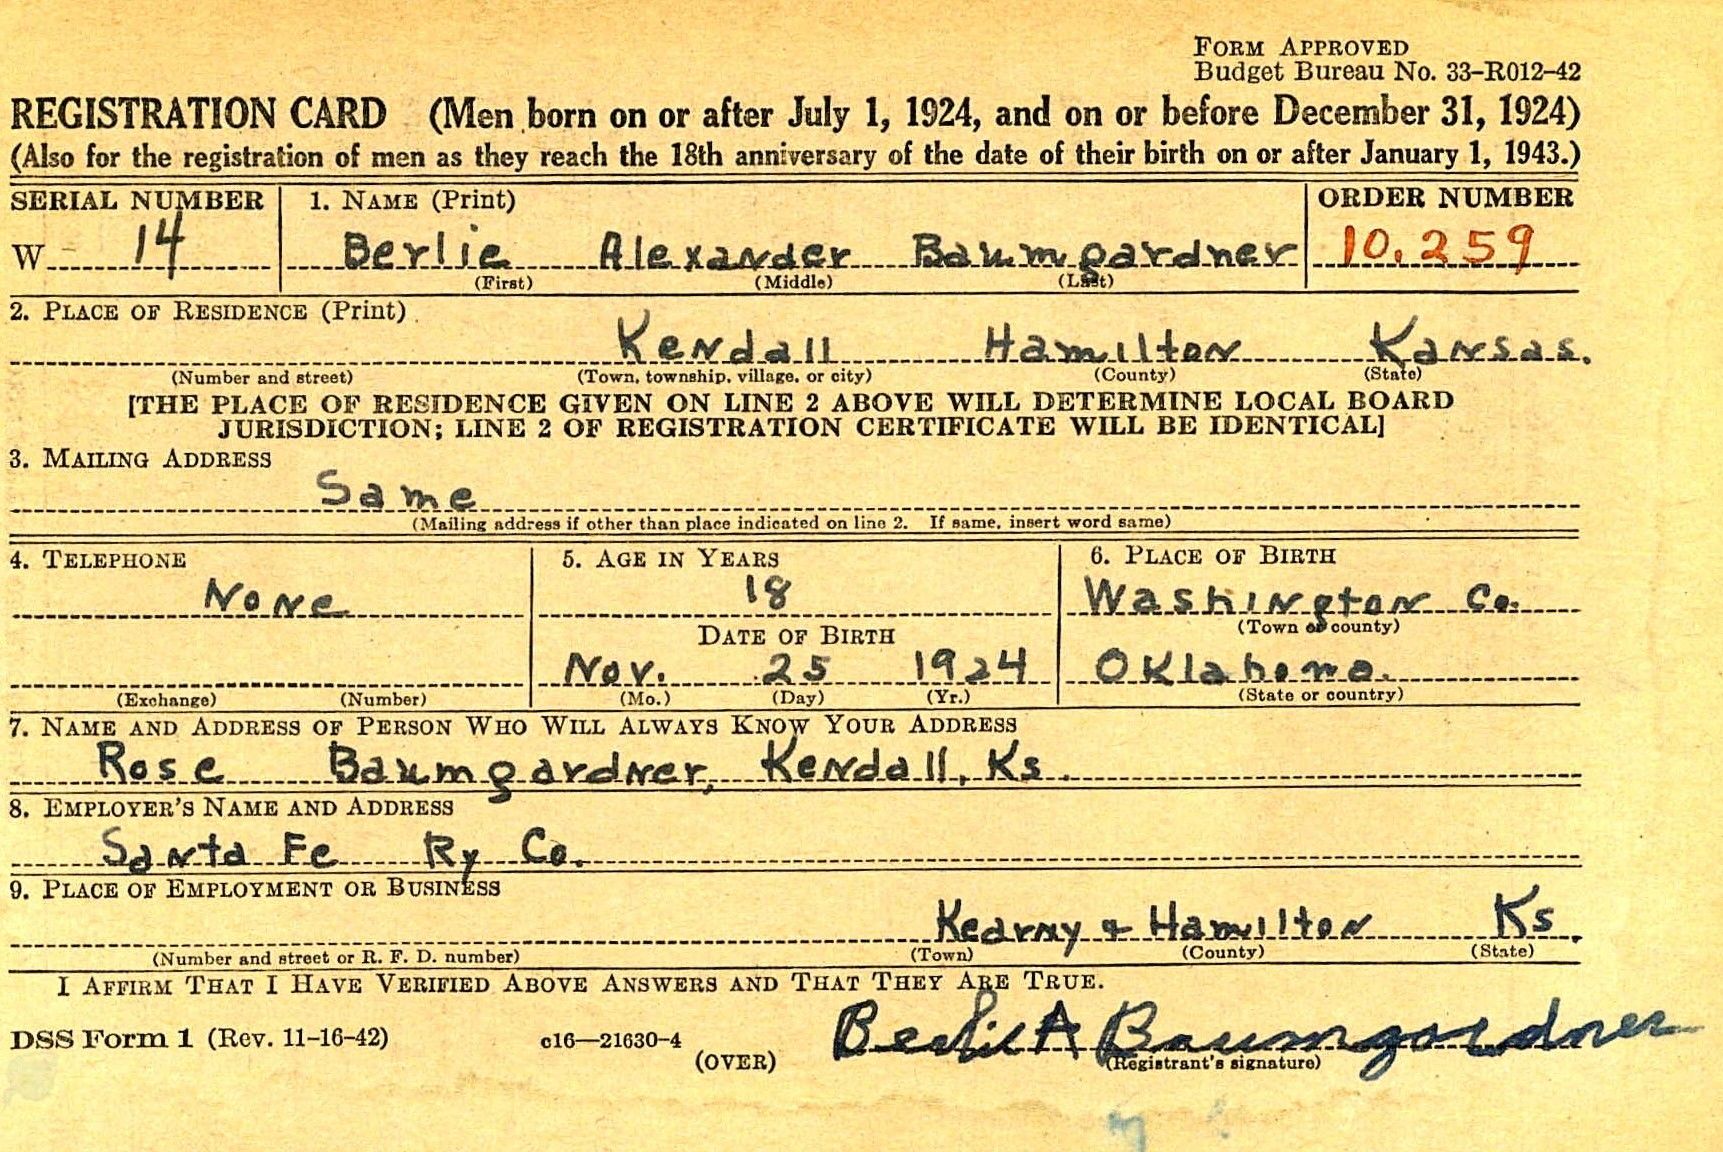 FORM APPROVED
Budget Bureau No. 33-R012-42
REGISTRATION CARD (Men born on or after July 1, 1924, and on or before December 31, 1924)
(Also for the registration of men as they reach the 18th anniversary of the date of their birth on or after January 1, 1943.)
SERIAL NUMBER 1. NAME (Print) ORDER NUMBER
W 14 Berlie Alexander Baumgardner 10,259
(First) (Middle) (Last)
2. PLACE OF RESIDENCE (Print)
Kendall Hamilton Kansas.
(Number and street) (Town, township, village, or city) (County) (State)
[THE PLACE OF RESIDENCE GIVEN ON LINE 2 ABOVE WILL DETERMINE LOCAL BOARD
JURISDICTION; LINE 2 OF REGISTRATION CERTIFICATE WILL BE IDENTICAL]
3. MAILING ADDRESS
Same
(Mailing address if other than place indicated on line 2. If same, insert word same)
4. TELEPHONE 5. AGE IN YEARS 6. PLACE OF BIRTH
None 18 Washington Co.
DATE OF BIRTH (Town or county)
Nov. 25 1924 Oklahoma.
(Exchange) (Number) (Mo.) (Day) (Yr.) (State or country)
7. NAME AND ADDRESS OF PERSON WHO WILL ALWAYS KNOW YOUR ADDRESS
Rose Baumgardner, Kendall, Ks.
8. EMPLOYER'S NAME AND ADDRESS
Santa Fe Ry Co.
9. PLACE OF EMPLOYMENT OR BUSINESS
Kearny + Hamilton Ks.
(Number and street or R. F. D. number) (Town) (County) (State)
I AFFIRM THAT I HAVE VERIFIED ABOVE ANSWERS AND THAT THEY ARE TRUE.
DSS Form 1 (Rev. 11-16-42) c16—21630-4 Berlie A Baumgardner
(OVER) (Registrant's signature)